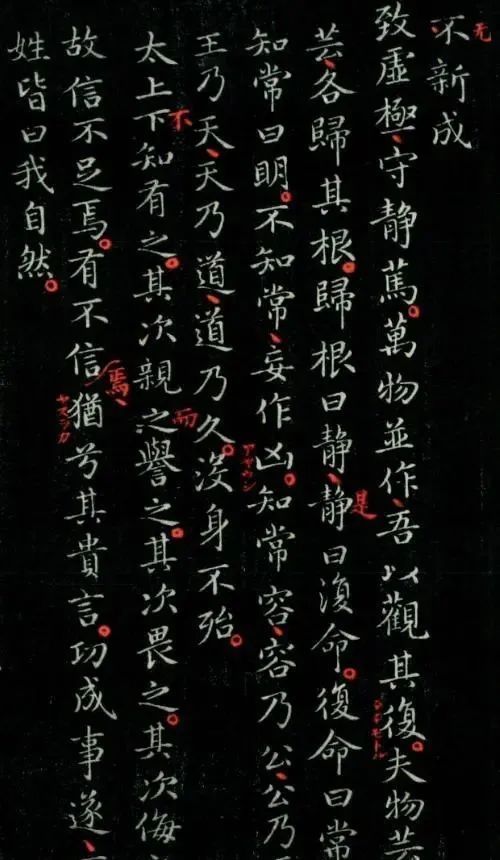 不新成
无
致虛極、守静篤。萬物並作、吾以觀其復。夫物芸
芸、各歸其根。歸根曰静、静曰復命。復命曰常
是
知常曰明。不知常、妄作凶。知常容、容乃公、公乃
アヤウシ
王乃天、天乃道、道乃久。没身不殆。
不
太上下知有之。其次親之譽之。其次畏之。其次侮
而
故信不足焉。有不信猶兮其貴言。功成事遂、
焉、
姓皆曰我自然。